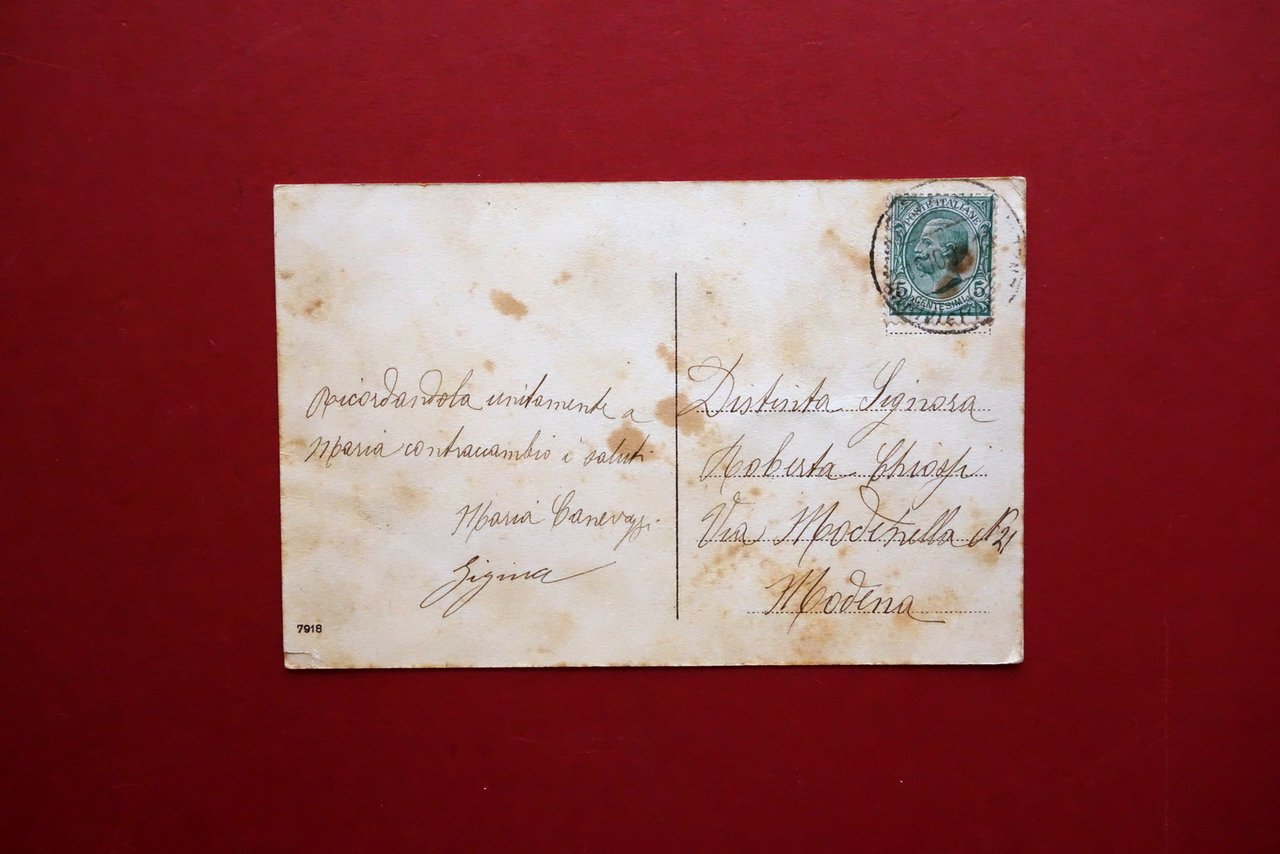 POSTE ITALIANE
5 CENTESIMI 5
Ricordandola unitamente a
Maria contraccambio i saluti
Maria Canevazzi
Gigina
Distinta Signora
Roberta Chiossi
Via Modenella N 21
Modena
7918